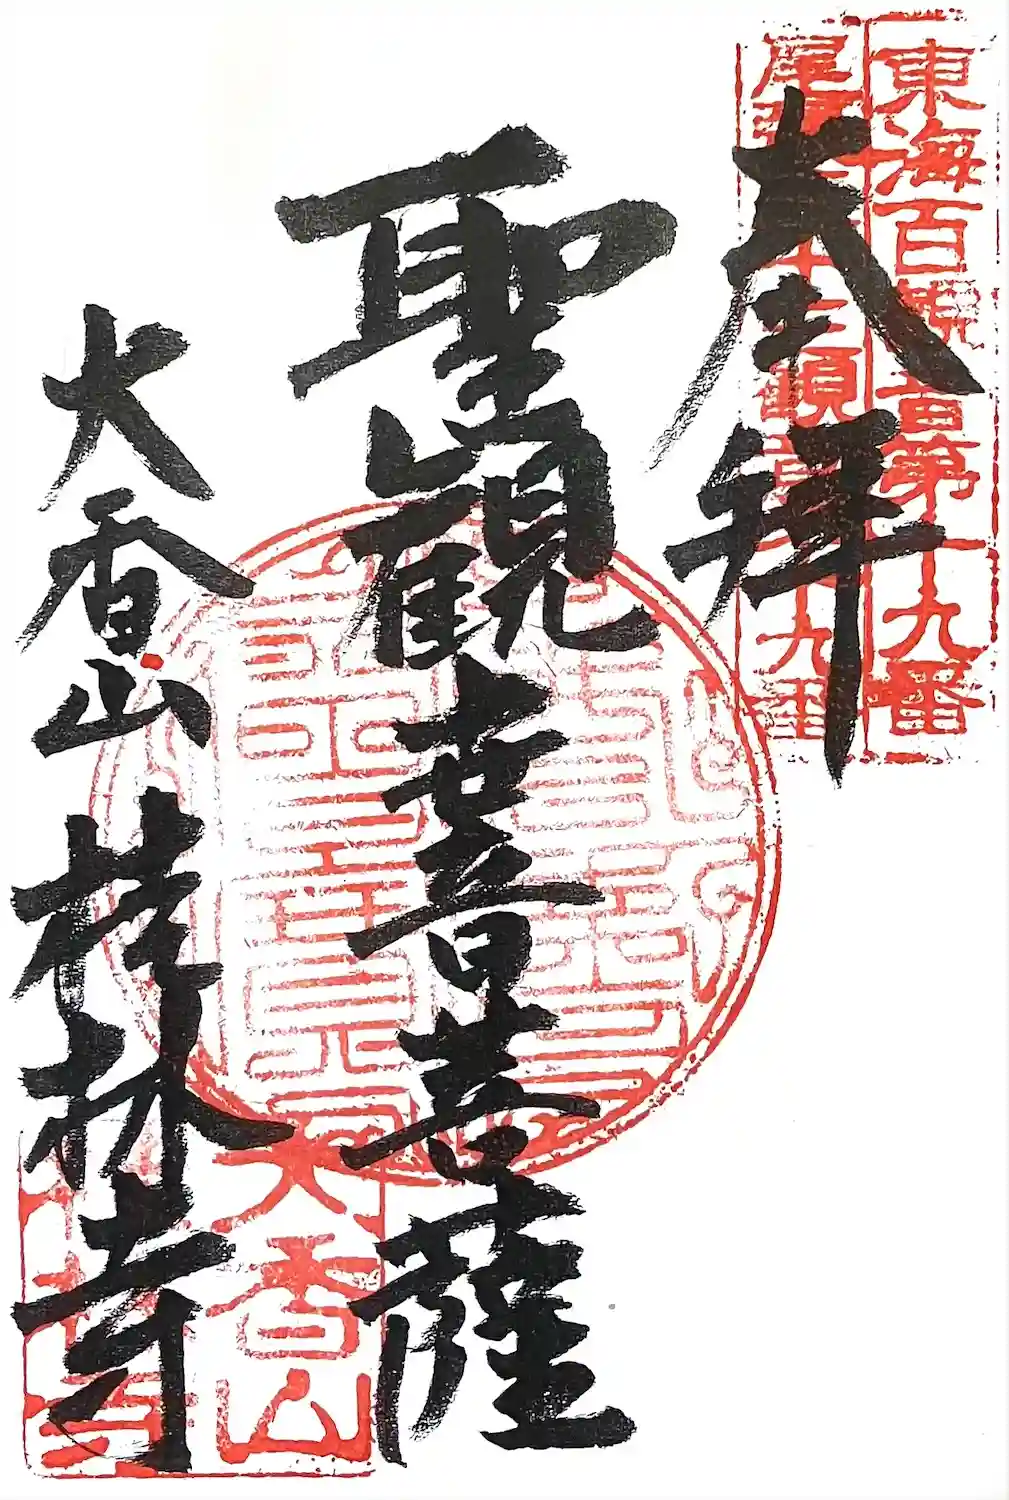 東海百観音第十九番
尾張三十三観音第十九番
奉拝
聖観世音菩薩
大香山 桂林寺
大香山
桂林寺